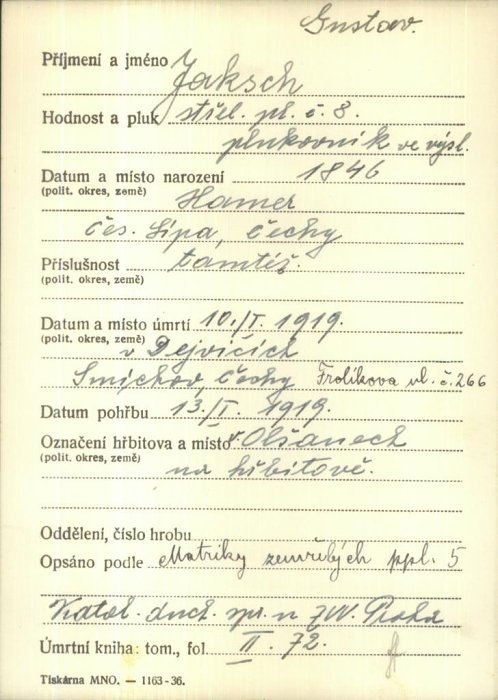 Gustav.
Příjmení a jméno Jaksch
Hodnost a pluk střel. pl. č. 8.
plukovník ve výsl.
Datum a místo narození 1846
(polit. okres, země) Hamer
Čes. Lípa, Čechy
Příslušnost tamtéž.
(polit. okres, země)
Datum a místo úmrtí 10./I. 1919.
(polit. okres, země) v Dejvicích
Smíchov, Čechy Frolíkova ul. č. 266
Datum pohřbu 13./I. 1919.
Označení hřbitova a místo v Olšanech
(polit. okres, země) na hřbitově.
Oddělení, číslo hrobu
Opsáno podle Matriky zemřelých ppl. 5
Katol. duch. spr. n ZVV. Praha
Úmrtní kniha: tom., fol. II. 72.
Tiskárna MNO. — 1163-36.